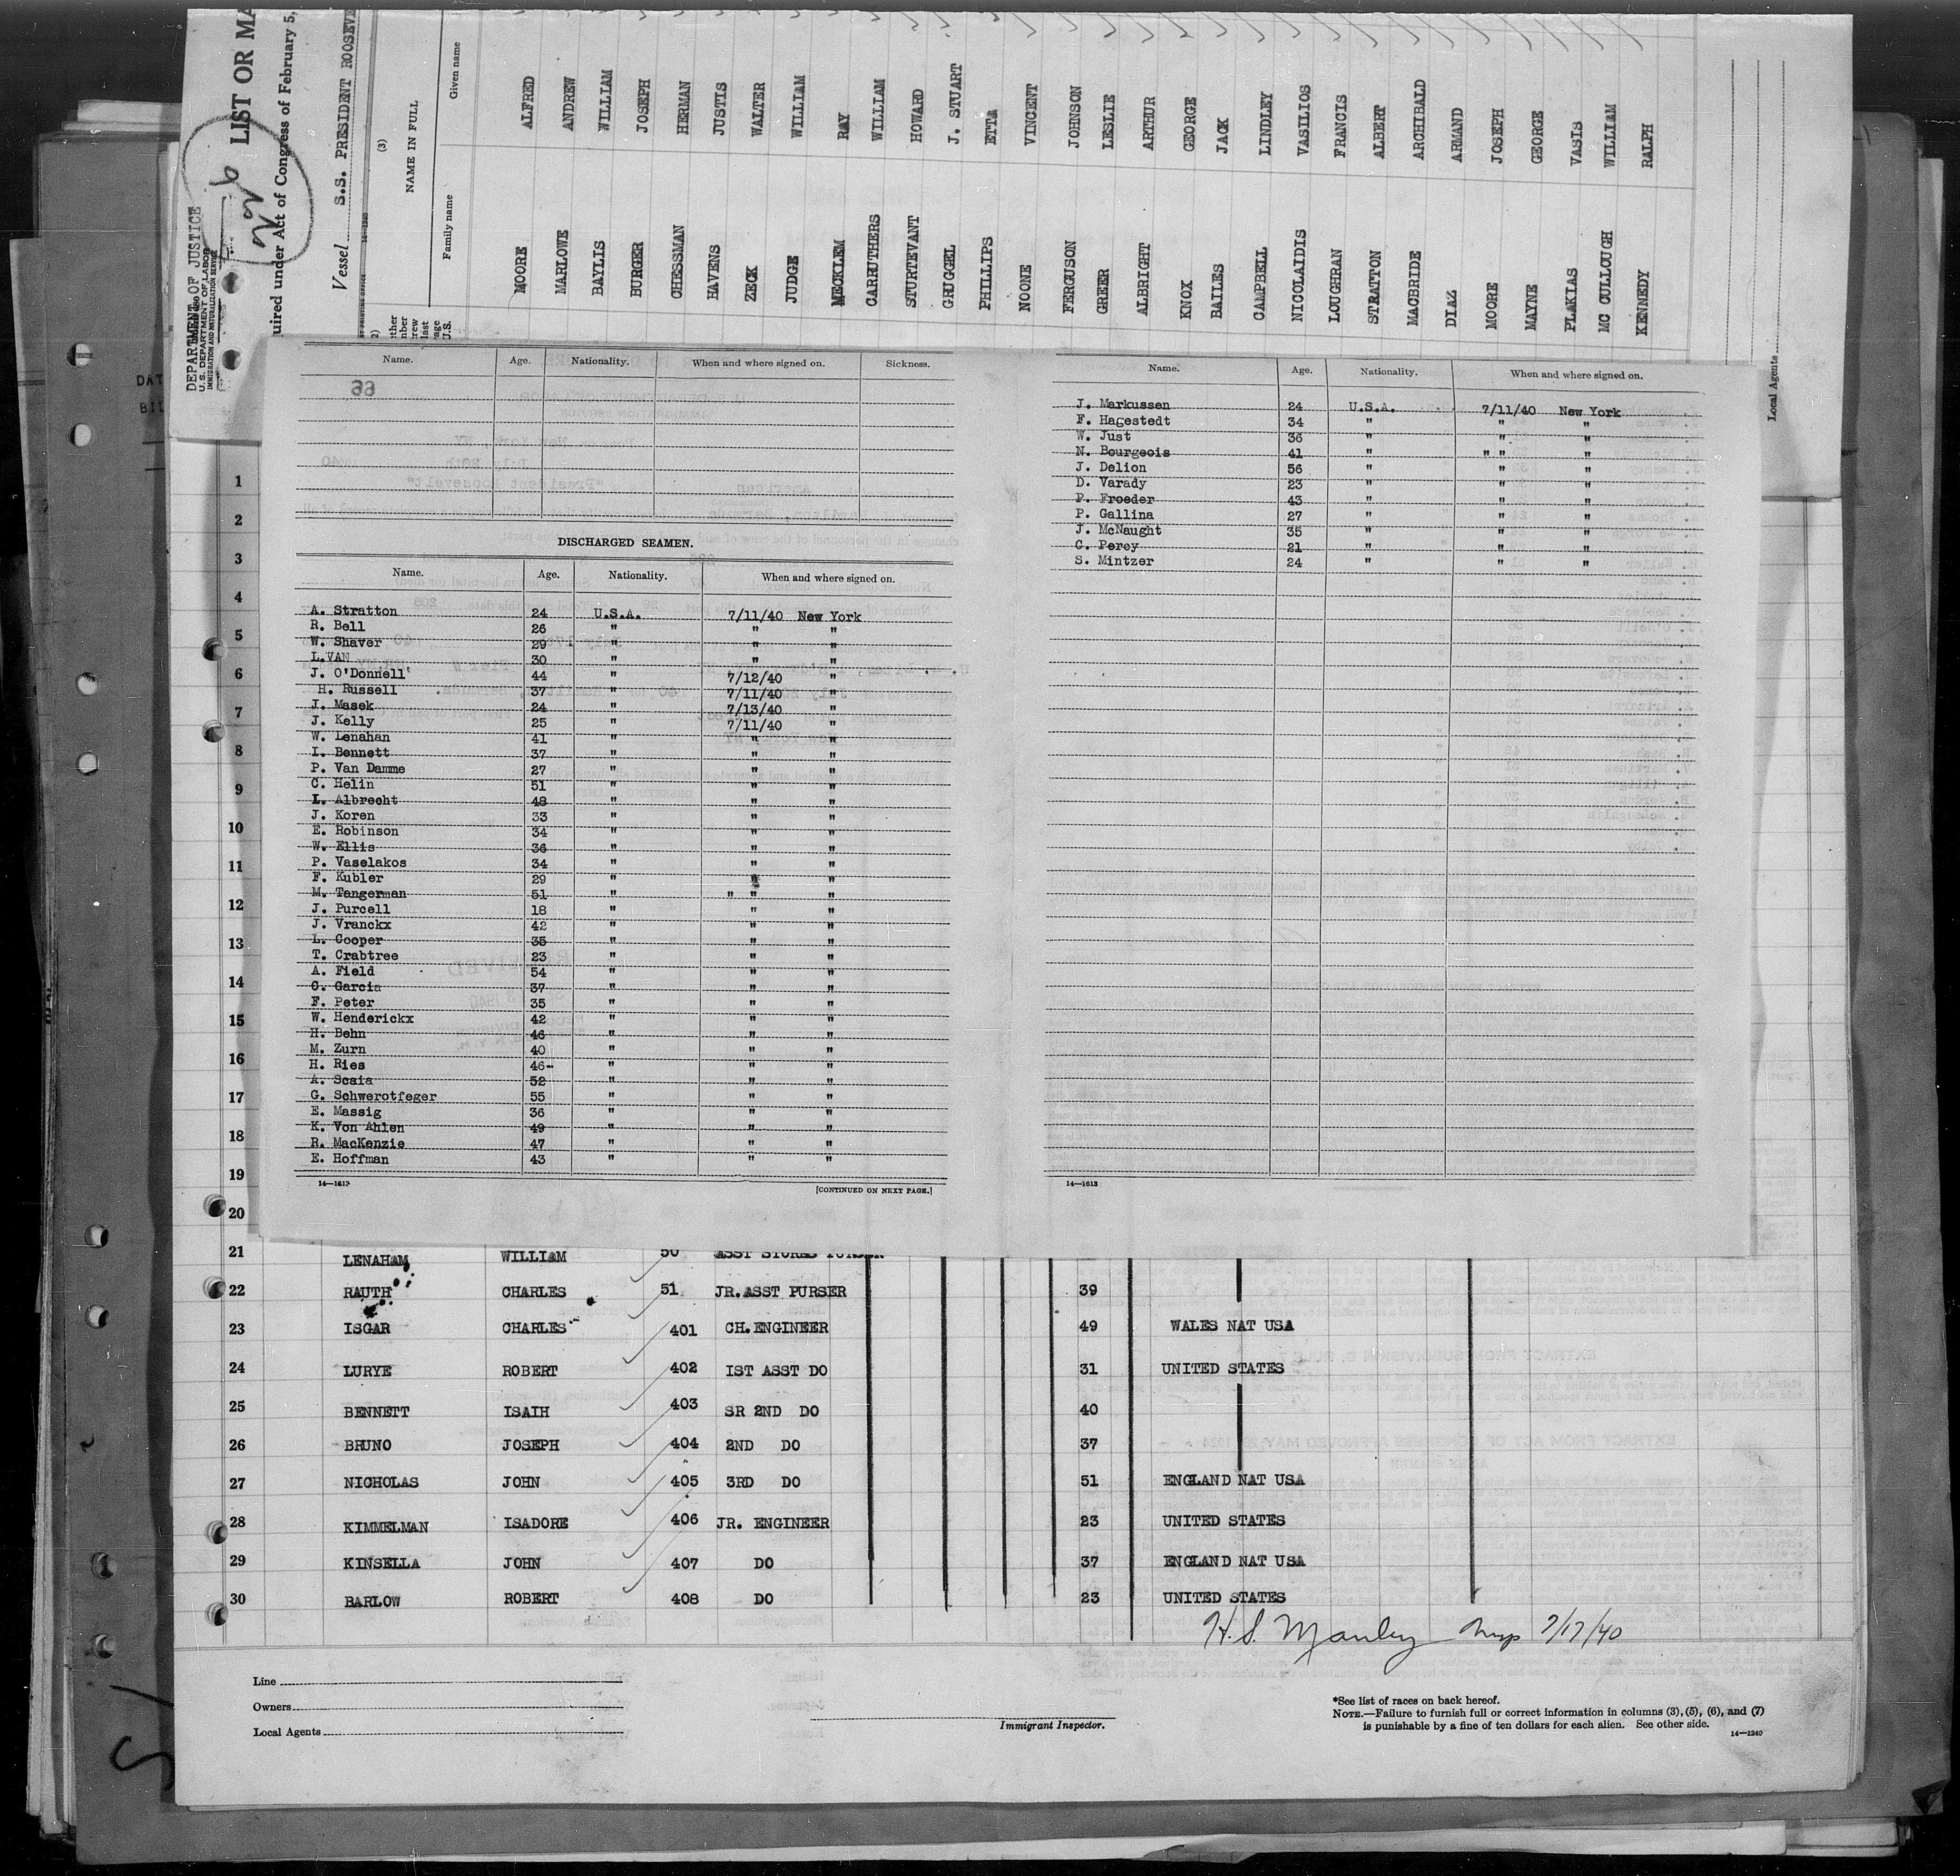 LIST OR MA
DEPARTMENT OF JUSTICE
U. S. DEPARTMENT OF LABOR
IMMIGRATION AND NATURALIZATION SERVICE
uired under Act of Congress of February 5,
Vessel S.S. PRESIDENT ROOSEVE
(3)
NAME IN FULL
Family name Given name
MOORE ALFRED
MARLOWE ANDREW
BAYLIS WILLIAM
BURGER JOSEPH
CHESSMAN HERMAN
HAVENS JUSTIS
ZECK WALTER
JUDGE WILLIAM
MECKLEM RAY
CARRUTHERS WILLIAM
STURTEVANT HOWARD
GRUGGEL J. STUART
PHILLIPS ETTA
NOONE VINCENT
FERGUSON JOHNSON
GREER LESLIE
ALBRIGHT ARTHUR
KNOX GEORGE
BAILES JACK
CAMPBELL LINDLEY
NICOLAIDIS VASILIOS
LOUGHRAN FRANCIS
STRATTON ALBERT
MACBRIDE ARCHIBALD
DIAZ ARMAND
MOORE JOSEPH
MAYNE GEORGE
PLAKIAS VASIS
MC CULLOUGH WILLIAM
KENNEDY RALPH
Local Agents
Name. Age. Nationality. When and where signed on. Sickness.
DISCHARGED SEAMEN.
Name. Age. Nationality. When and where signed on.
A. Stratton 24 U.S.A. 7/11/40 New York
R. Bell 26 " " "
W. Shaver 29 " " "
L.VAN 30 " " "
J. O'Donnell 44 " 7/12/40 "
H. Russell 37 " 7/11/40 "
J. Masek 24 " 7/13/40 "
J. Kelly 25 " 7/11/40 "
W. Lenahan 41 " " "
I. Bennett 37 " " "
P. Van Damme 27 " " "
C. Helin 51 " " "
L. Albrecht 48 " " "
J. Koren 33 " " "
E. Robinson 34 " " "
W. Ellis 36 " " "
P. Vaselakos 34 " " "
F. Kubler 29 " " "
M. Tangerman 51 " " " "
J. Purcell 18 " " "
J. Vranckx 42 " " "
L. Cooper 35 " " "
T. Crabtree 23 " " "
A. Field 54 " " "
C. Garcia 37 " " "
F. Peter 35 " " "
W. Henderickx 42 " " "
H. Behn 46 " " "
M. Zurn 40 " " "
H. Ries 46- " " "
A. Scaia 52 " " "
G. Schwerotfeger 55 " " "
E. Massig 36 " " "
K. Von Ahlen 49 " " "
R. MacKenzie 47 " " "
E. Hoffman 43 " " "
14—1613
[CONTINUED ON NEXT PAGE.]
Name. Age. Nationality. When and where signed on.
J. Markussen 24 U.S.A. 7/11/40 New York
F. Hagestedt 34 " " "
W. Just 36 " " "
N. Bourgeois 41 " " " "
J. Delion 56 " " "
D. Varady 23 " " "
P. Froeder 43 " " "
P. Gallina 27 " " "
J. McNaught 35 " " "
C. Perey 21 " " "
S. Mintzer 24 " " "
14—1613
1
2
3
4
5
6
7
8
9
10
11
12
13
14
15
16
17
18
19
20
21 LENAHAM WILLIAM 50 ASST STORES PURSER
22 RAUTH CHARLES 51 JR.ASST PURSER 39
23 ISGAR CHARLES 401 CH.ENGINEER 49 WALES NAT USA
24 LURYE ROBERT 402 IST ASST DO 31 UNITED STATES
25 BENNETT ISAIH 403 SR 2ND DO 40
26 BRUNO JOSEPH 404 2ND DO 37
27 NICHOLAS JOHN 405 3RD DO 51 ENGLAND NAT USA
28 KIMMELMAN ISADORE 406 JR. ENGINEER 23 UNITED STATES
29 KINSELLA JOHN 407 DO 37 ENGLAND NAT USA
30 BARLOW ROBERT 408 DO 23 UNITED STATES
H. S. Manley 7/17/40
Line
Owners
Local Agents
Immigrant Inspector.
*See list of races on back hereof.
NOTE.—Failure to furnish full or correct information in columns (3), (5), (6), and (7)
is punishable by a fine of ten dollars for each alien. See other side.
14—1240